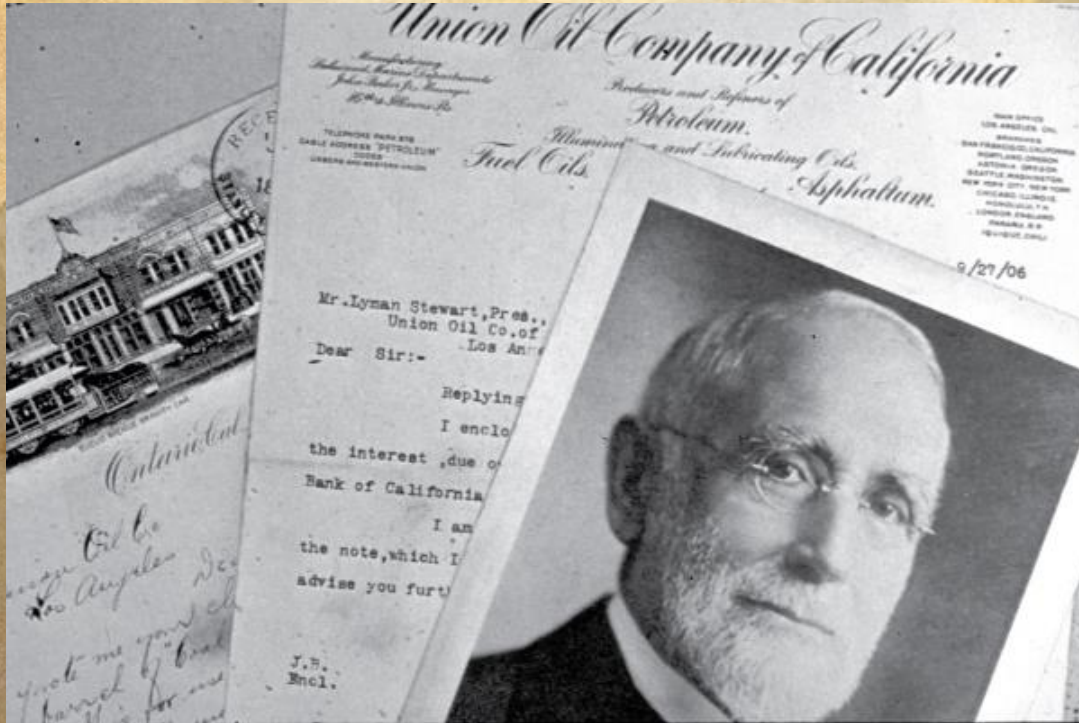 Union Oil Company of California
Manufacturing
John Baker Jr. Manager
16th & Illinois Sts.
TELEPHONE PARK
CABLE ADDRESS "PETROLEUM"
CODES
Producers and Refiners of
Petroleum.
and Lubricating Oils.
Fuel Oils.
Asphaltum.
MAIN OFFICE
LOS ANGELES, CAL.
BRANCHES
SAN FRANCISCO, CALIFORNIA
PORTLAND, OREGON
ASTORIA, OREGON
SEATTLE, WASHINGTON
NEW YORK CITY, NEW YORK
CHICAGO, ILLINOIS
HONOLULU, T.H.
LONDON, ENGLAND
PANAMA, R.P.
IQUIQUE, CHILI
9/27/06
Mr.Lyman Stewart,Pres.,
Union Oil Co.of
Los
Dear Sir:-
Replying
I
the interest ,due
Bank of California
I am
the note,which
advise you
J.B.
Encl.
RECE
18
Ontario, Cal.
Oil Co
Los Angeles
me your
barrel of
for